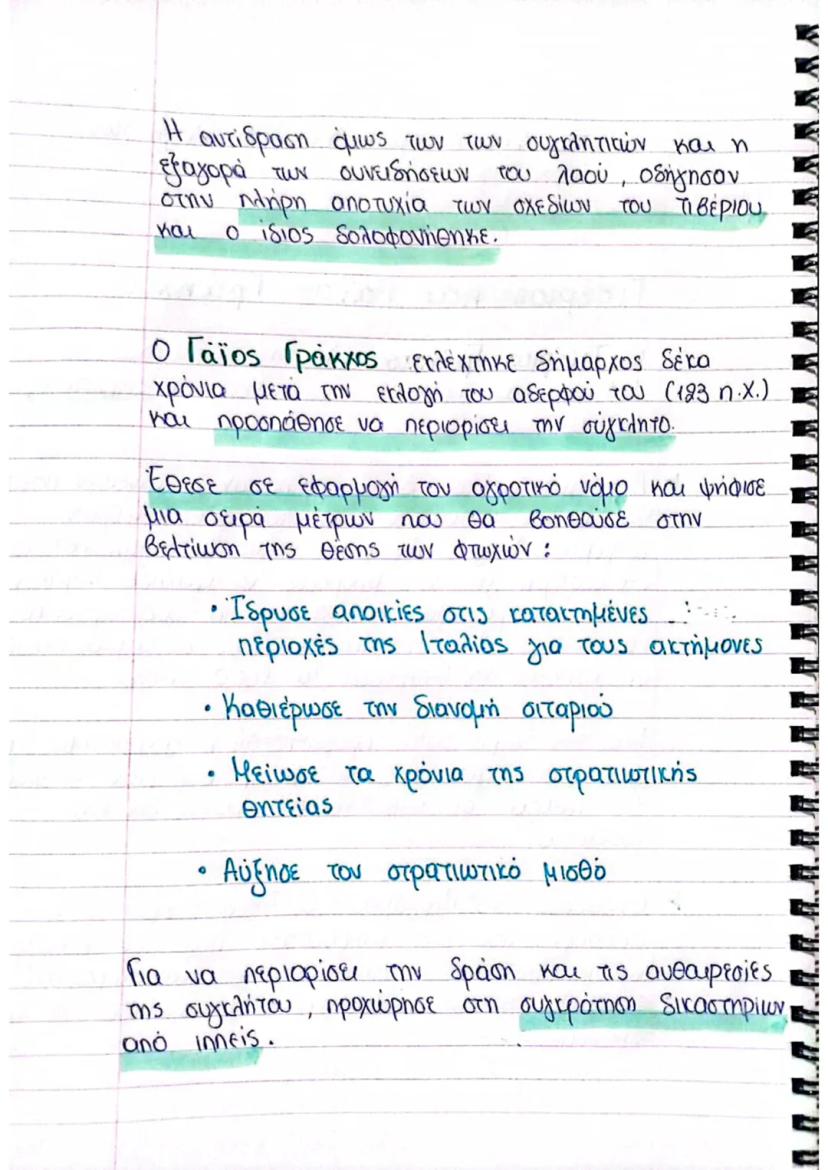 Η αντίδραση όμως των των συγκλητικών και η
εξαγορά των συνειδήσεων του λαού, οδήγησαν
στην πλήρη αποτυχία των σχεδίων του Τιβέριου
και ο ίδιος δολοφονήθηκε.
Ο Γάϊος Γράκχος εκλέχτηκε δήμαρχος δέκα
χρόνια μετά την εκλογή του αδερφού του (123 π.Χ.)
και προσπάθησε να περιορίσει την σύγκλητο.
Έθεσε σε εφαρμογή τον αγροτικό νόμο και ψήφισε
μια σειρά μέτρων που θα βοηθούσε στην
βελτίωση της θέσης των φτωχών:
• Ίδρυσε αποικίες στις κατακτημένες
περιοχές της Ιταλίας για τους ακτήμονες
• Καθιέρωσε την διανομή σιταριού
• Μείωσε τα χρόνια της στρατιωτικής
θητείας
• Αύξησε τον στρατιωτικό μισθό
Για να περιορίσει την δράση και τις αυθαιρεσίες
της συγκλήτου, προχώρησε στη συγκρότηση δικαστηρίων
από ιππείς.